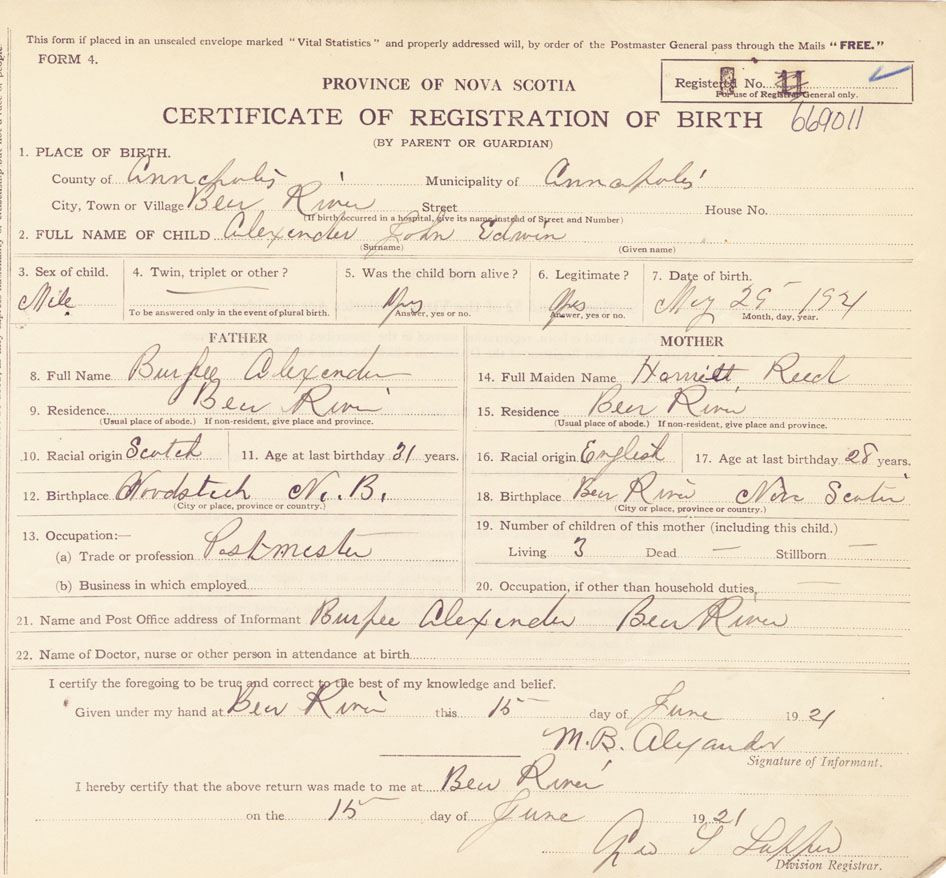 This form if placed in an unsealed envelope marked "Vital Statistics" and properly addressed will, by order of the Postmaster General pass through the Mails "FREE."
FORM 4.
PROVINCE OF NOVA SCOTIA
Registered No.
For use of Registrar General only.
CERTIFICATE OF REGISTRATION OF BIRTH 669011
(BY PARENT OR GUARDIAN)
1. PLACE OF BIRTH.
County of Annapolis Municipality of Annapolis
City, Town or Village Bear River Street House No.
(If birth occurred in a hospital, give its name instead of Street and Number)
2. FULL NAME OF CHILD Alexander John Edwin
(Surname) (Given name)
3. Sex of child. 4. Twin, triplet or other? 5. Was the child born alive? 6. Legitimate? 7. Date of birth.
Male Yes Yes May 25 1921
To be answered only in the event of plural birth. Answer, yes or no. Answer, yes or no. Month, day, year.
FATHER
8. Full Name Burpee Alexander
9. Residence Bear River
(Usual place of abode.) If non-resident, give place and province.
10. Racial origin Scotch 11. Age at last birthday 31 years.
12. Birthplace Woodstock N.B.
(City or place, province or country.)
13. Occupation:—
(a) Trade or profession Postmaster
(b) Business in which employed
MOTHER
14. Full Maiden Name Harriett Reed
15. Residence Bear River
(Usual place of abode.) If non-resident, give place and province.
16. Racial origin English 17. Age at last birthday 28 years.
18. Birthplace Bear River Nova Scotia
(City or place, province or country.)
19. Number of children of this mother (including this child.)
Living 3 Dead — Stillborn —
20. Occupation, if other than household duties,
21. Name and Post Office address of Informant Burpee Alexander Bear River
22. Name of Doctor, nurse or other person in attendance at birth
I certify the foregoing to be true and correct to the best of my knowledge and belief.
Given under my hand at Bear River this 15 day of June 1921
M.B. Alexander
Signature of Informant.
I hereby certify that the above return was made to me at Bear River
on the 15 day of June 1921
Geo
Division Registrar.